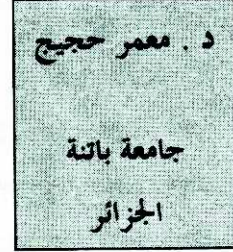 د . معمر حجيج
جامعة باتنة
الجزائر